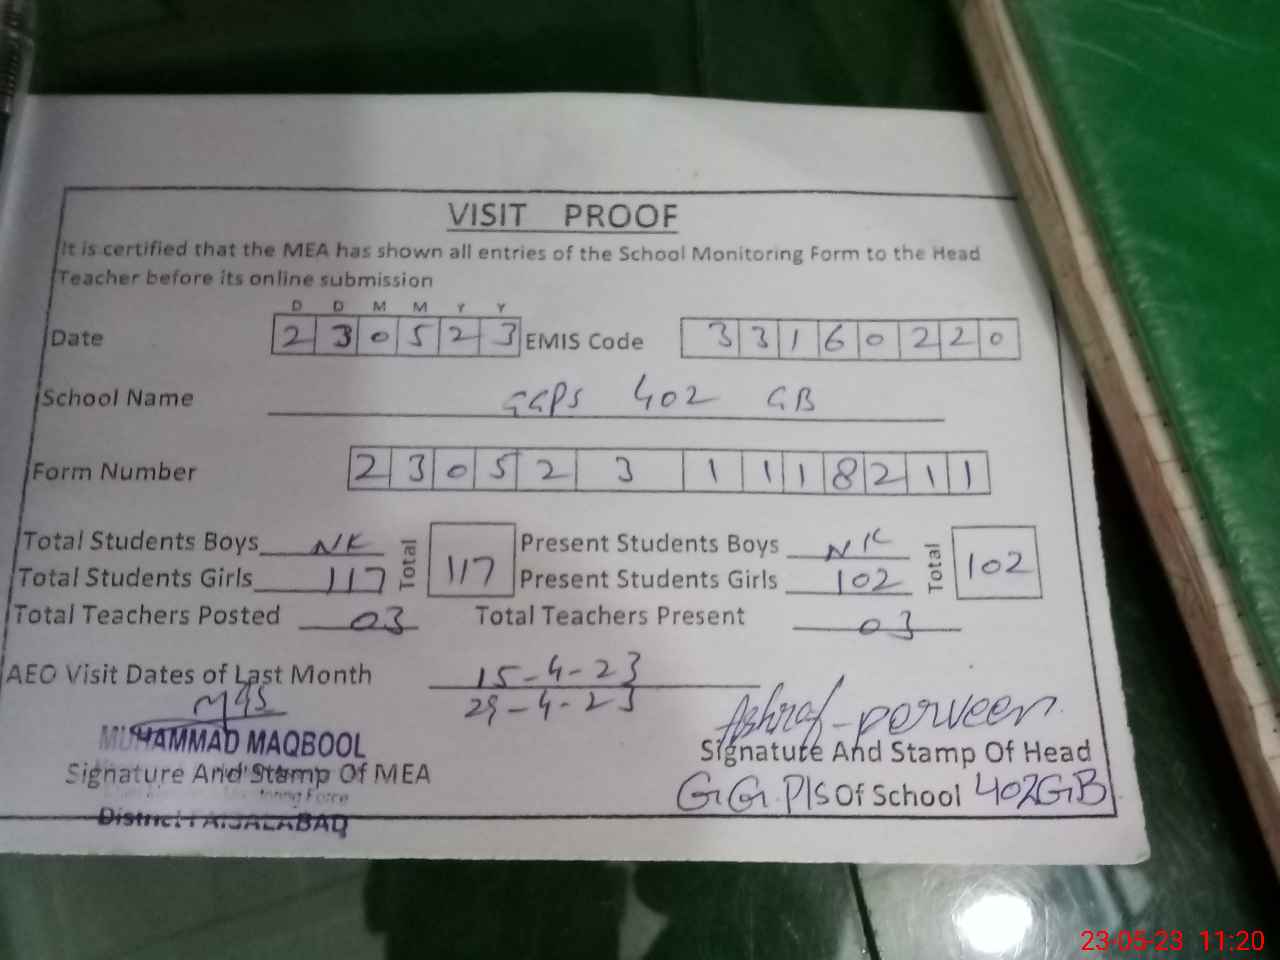 VISIT PROOF
It is certified that the MEA has shown all entries of the School Monitoring Form to the Head
Teacher before its online submission
D D M M Y Y
Date 2 3 0 5 2 3 EMIS Code 3 3 1 6 0 2 2 0
School Name GGPS 402 GB
Form Number 2 3 0 5 2 3 1 1 1 8 2 1 1
Total Students Boys NK Total 117 Present Students Boys NK Total 102
Total Students Girls 117 Present Students Girls 102
Total Teachers Posted 03 Total Teachers Present 03
AEO Visit Dates of Last Month 15-4-23
29-4-23
Ashraf-perveen
MUHAMMAD MAQBOOL
Signature And Stamp Of Head
Signature And Stamp Of MEA
G.G.P/S Of School 402GB
Monitoring Force
District FAISALABAD
23-05-23 11:20